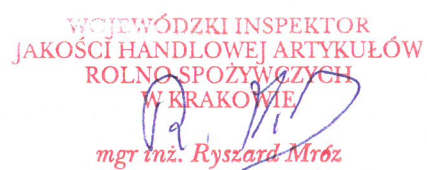 WOJEWÓDZKI INSPEKTOR
JAKOŚCI HANDLOWEJ ARTYKUŁÓW
ROLNO SPOŻYWCZYCH
W KRAKOWIE
mgr inż. Ryszard Mróz